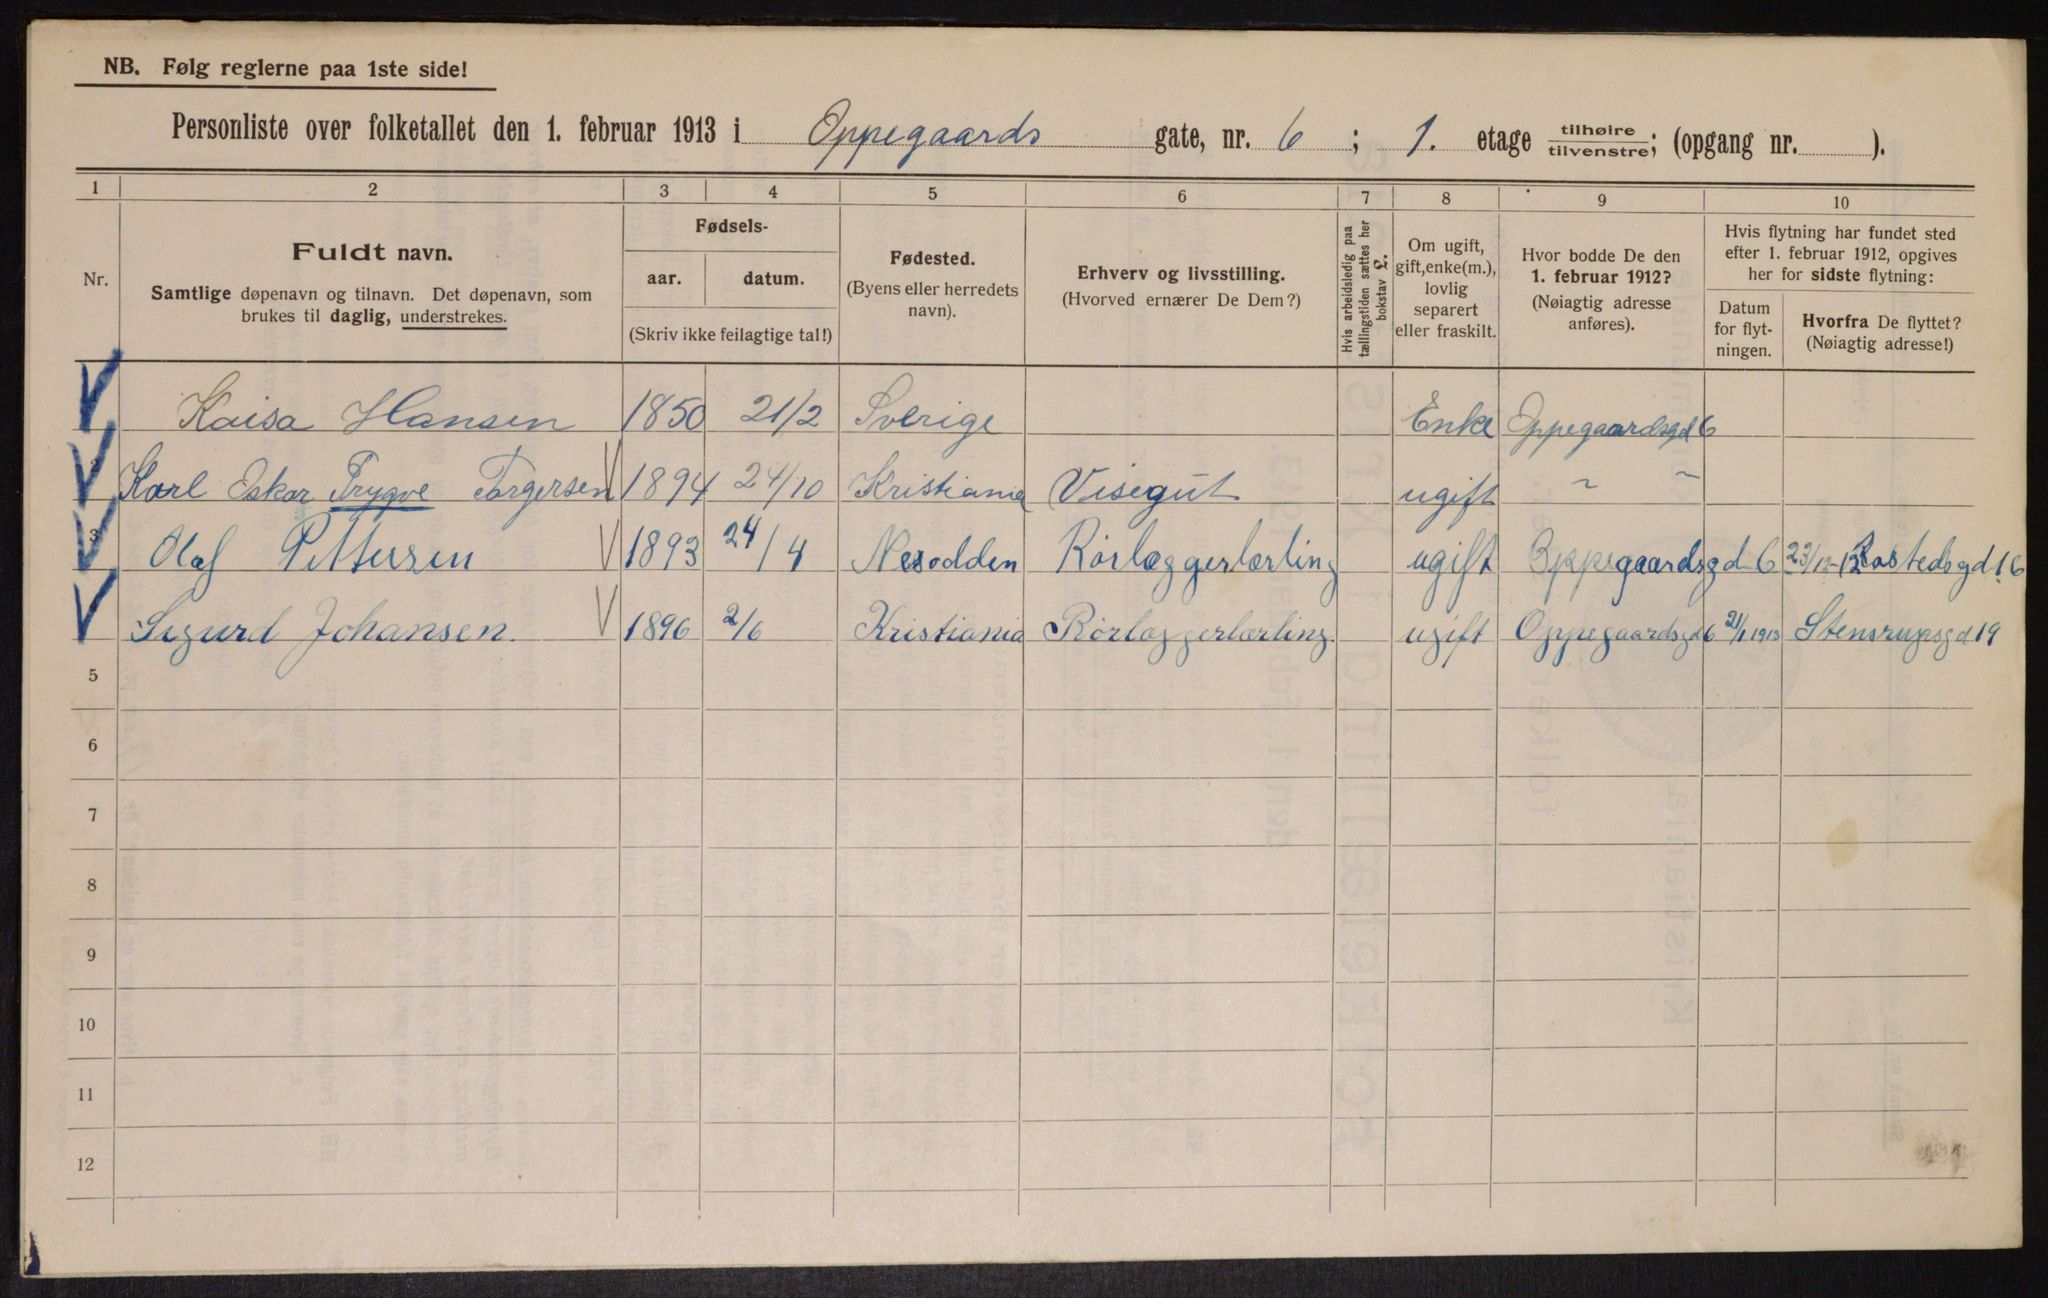 NB. Følg reglerne paa 1ste side!
Personliste over folketallet den 1. februar 1913 i Oppegaards gate, nr. 6 ; 1. etage tilhøire tilvenstre; (opgang nr. ).
1 2 3 4 5 6 7 8 9 10
Nr.
Fuldt navn.
Samtlige døpenavn og tilnavn. Det døpenavn, som
brukes til daglig, understrekes.
Fødsels-
aar. datum.
(Skriv ikke feilagtige tal!)
Fødested.
(Byens eller herredets
navn).
Erhverv og livsstilling.
(Hvorved ernærer De Dem?)
Hvis arbeidsledig paa
tællingstiden sættes her
bokstav £.
Om ugift,
gift, enke(m.),
lovlig
separert
eller fraskilt.
Hvor bodde De den
1. februar 1912?
(Nøiagtig adresse
anføres).
Hvis flytning har fundet sted
efter 1. februar 1912, opgives
her for sidste flytning:
Datum
for flyt-
ningen.
Hvorfra De flyttet?
(Nøiagtig adresse!)
Kaisa Hansen 1850 21/2 Sverige Enke Oppegaardsgd 6
2 Karl Oskar Trygve Torgersen 1894 24/10 Kristiania Visegut ugift ~ ~
3 Olaf Pettersen 1893 24/4 Nesodden Rörlæggerlærling ugift Oppegaardsgd 6 23/12-12 Rostedsgd 16
Sigurd Johansen 1896 2/6 Kristiania Rörlæggerlærling. ugift Oppegaardsgd 6 21/1 1913 Stensrupsgd 19
5
6
7
8
9
10
11
12